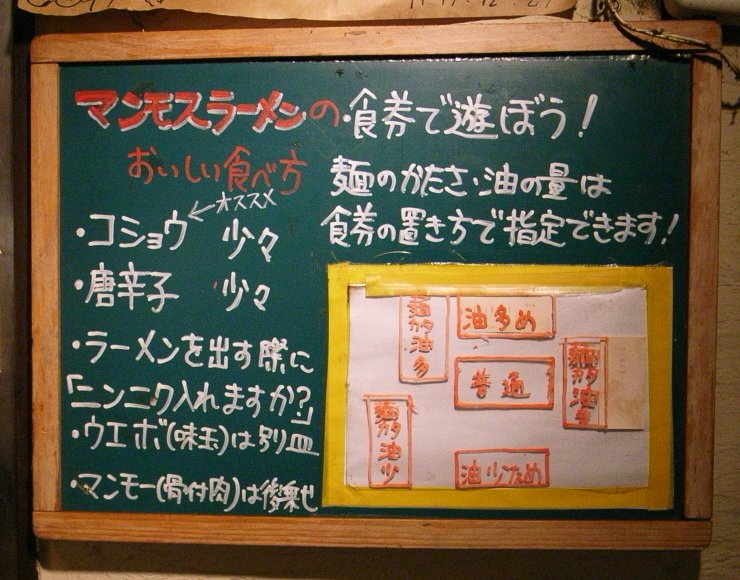 マンモスラーメンの食券で遊ぼう!
おいしい食べ方
オススメ
・コショウ 少々
・唐辛子 少々
・ラーメンを出す際に
「ニンニク入れますか?」
・ウエボ(味玉)は別皿
・マンモー(骨付肉)は後乗せ
麺のかたさ・油の量は
食券の置き方で指定できます!
麺カタ油多
油多め
普通
麺カタ油少
油少なめ